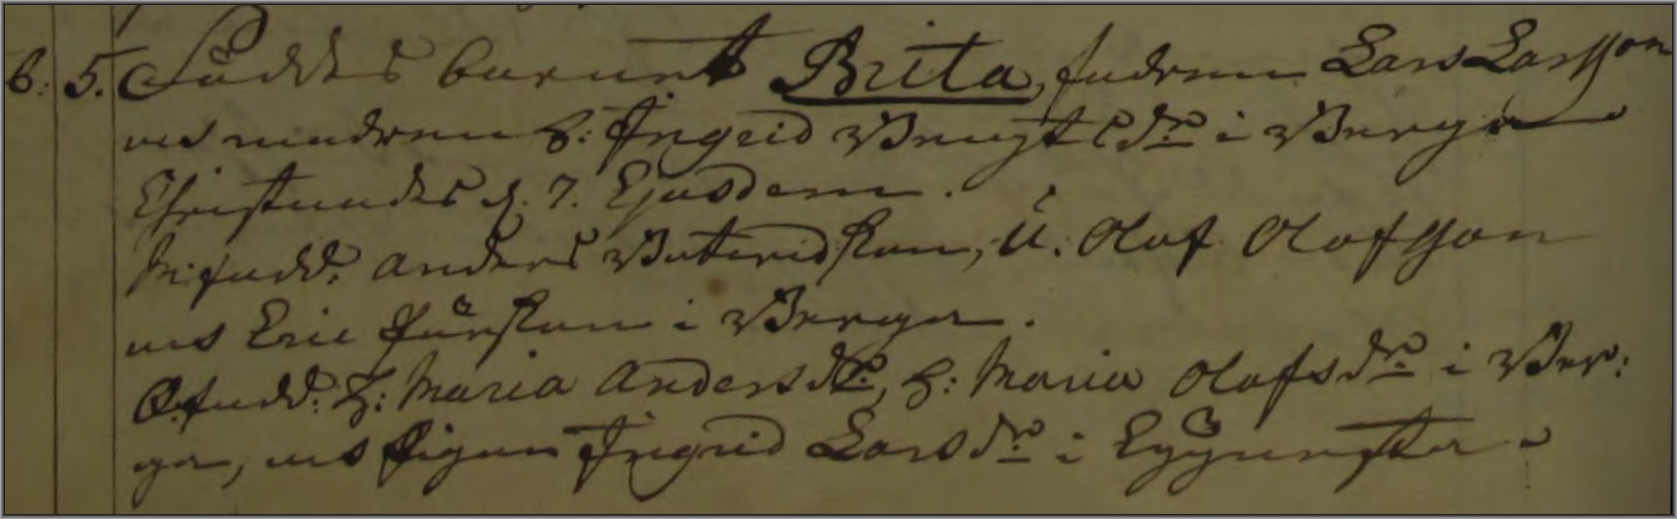 6. 5. Föddes barnet Brita, fadren Lars Larsson
och modren h: Ingrid Bengtsdr i Berga
Christnades d. 7. Ejusdem.
M:fadd: Anders, U. Olof Olofsson
och Eric Pärsson i Berga.
Q.fadd: h: Maria Andersdr, h: Maria Olofsdr i Ber:
ga, och Pigan Ingrid Larsdr i